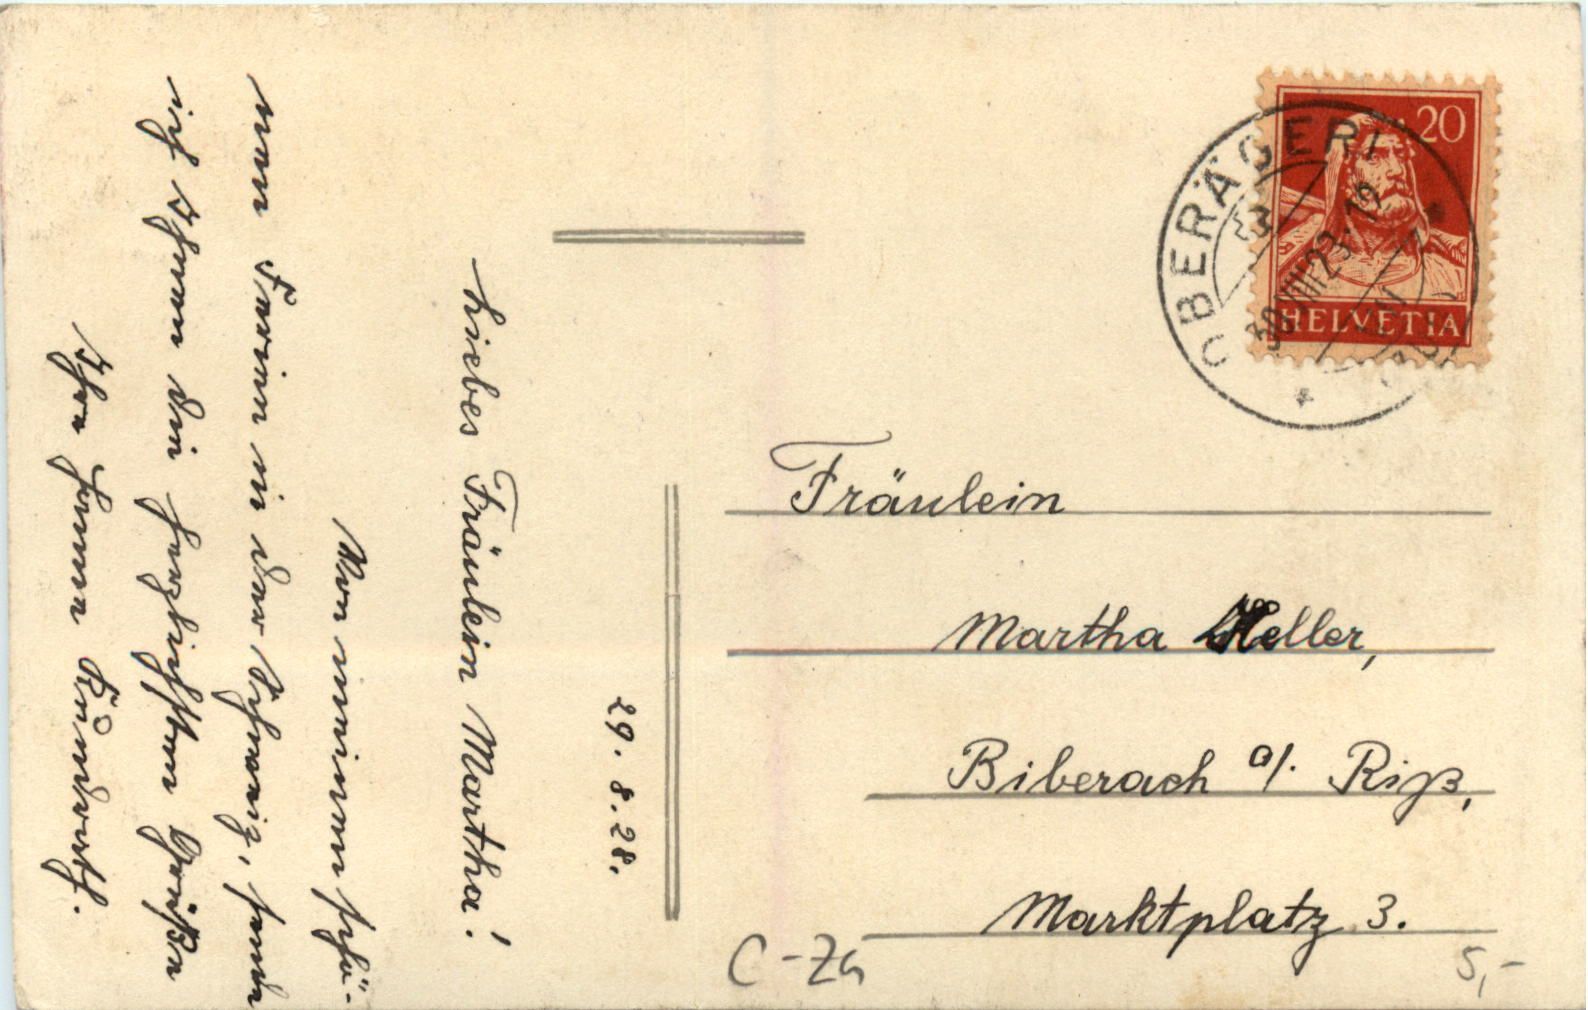 29. 8. 28.
Liebes Fräulein Martha!
Von meinem schö-
nen Ferien in der Schweiz, sende
ich Ihnen die herzlichsten Grüße
Ihr
Fräulein
Martha Heller,
Biberach a/. Riß,
Marktplatz 3.
HELVETIA
20
OBERÄGERI
30.VIII.28-12
C-Zg
5,-